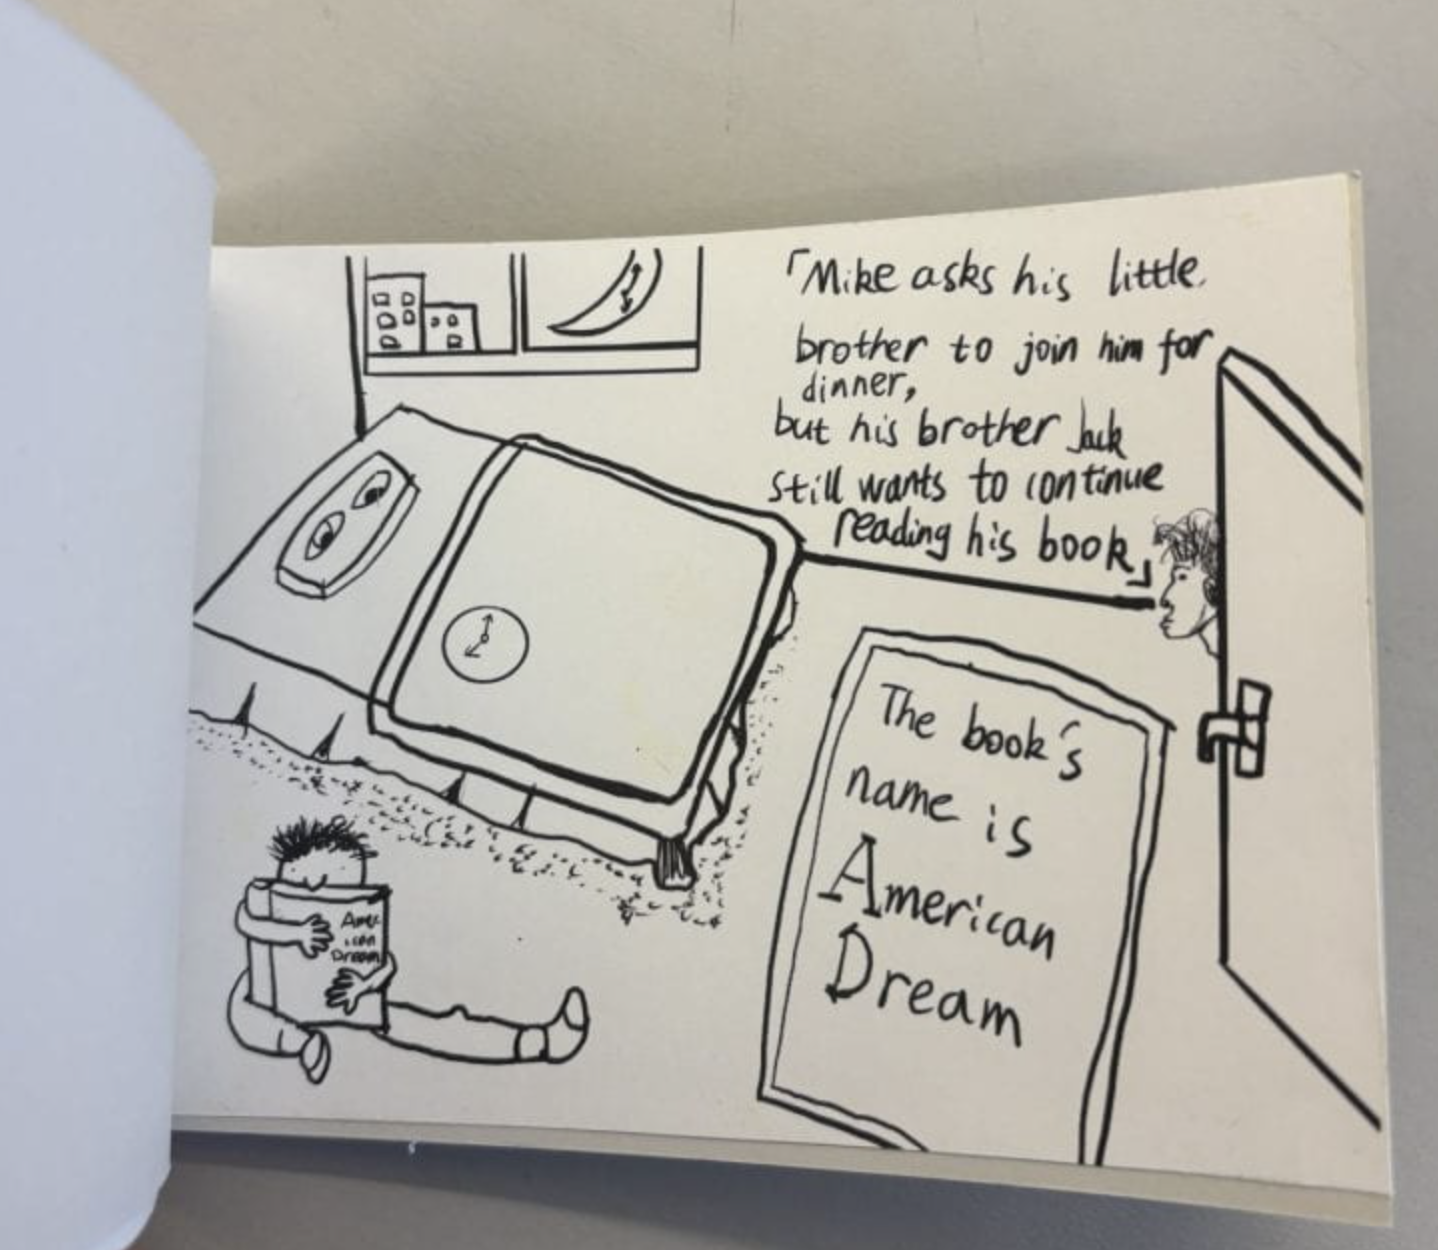 「Mike asks his little
brother to join him for
dinner,
but his brother Jack
still wants to continue
reading his book」
The book's
name is
American
Dream
Amer
ican
Dream